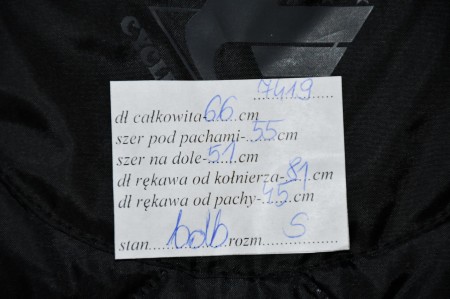 CYCLE
7419
dł całkowita-66cm
szer pod pachami-55cm
szer na dole-51cm
dł rękawa od kołnierza-81cm
dł rękawa od pachy-45cm
stan bdb rozm S